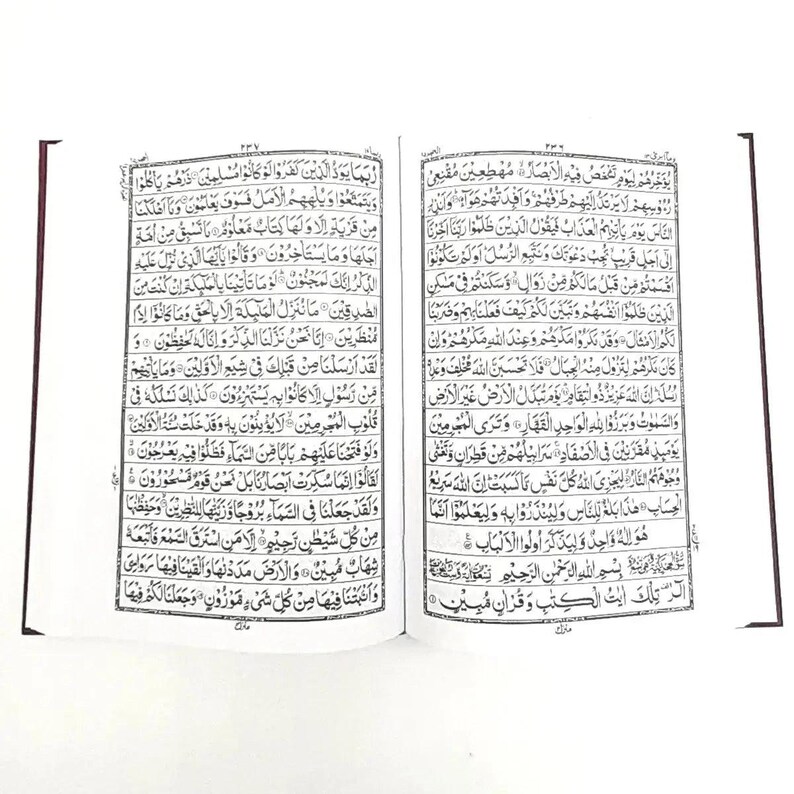 ٢٣٦
يُؤَخِّرُهُمْ لِيَوْمٍ تَشْخَصُ فِيْهِ الْاَبْصَارُ مُهْطِعِيْنَ مُقْنِعِيْ
رُءُوْسِهِمْ لَا يَرْتَدُّ اِلَيْهِمْ طَرْفُهُمْ وَاَفْـِٕدَتُهُمْ هَوَآءٌ وَاَنْذِرِ
النَّاسَ يَوْمَ يَاْتِيْهِمُ الْعَذَابُ فَيَقُوْلُ الَّذِيْنَ ظَلَمُوْا رَبَّنَآ اَخِّرْنَآ
اِلٰٓى اَجَلٍ قَرِيْبٍ نُّجِبْ دَعْوَتَكَ وَنَتَّبِعِ الرُّسُلَ اَوَلَمْ تَكُوْنُوْٓا
اَقْسَمْتُمْ مِّنْ قَبْلُ مَالَكُمْ مِّنْ زَوَالٍ وَّسَكَنْتُمْ فِيْ مَسٰكِنِ
الَّذِيْنَ ظَلَمُوْٓا اَنْفُسَهُمْ وَتَبَيَّنَ لَكُمْ كَيْفَ فَعَلْنَا بِهِمْ وَضَرَبْنَا
لَكُمُ الْاَمْثَالَ وَقَدْ مَكَرُوْا مَكْرَهُمْ وَعِنْدَ اللّٰهِ مَكْرُهُمْ وَاِنْ
كَانَ مَكْرُهُمْ لِتَزُوْلَ مِنْهُ الْجِبَالُ فَلَا تَحْسَبَنَّ اللّٰهَ مُخْلِفَ وَعْدِهٖ
رُسُلَهٗ اِنَّ اللّٰهَ عَزِيْزٌ ذُو انْتِقَامٍ يَوْمَ تُبَدَّلُ الْاَرْضُ غَيْرَ الْاَرْضِ
وَالسَّمٰوٰتُ وَبَرَزُوْا لِلّٰهِ الْوَاحِدِ الْقَهَّارِ وَتَرَى الْمُجْرِمِيْنَ
يَوْمَئِذٍ مُّقَرَّنِيْنَ فِي الْاَصْفَادِ سَرَابِيْلُهُمْ مِّنْ قَطِرَانٍ وَّتَغْشٰى
وُجُوْهَهُمُ النَّارُ لِيَجْزِيَ اللّٰهُ كُلَّ نَفْسٍ مَّا كَسَبَتْ اِنَّ اللّٰهَ سَرِيْعُ
الْحِسَابِ هٰذَا بَلٰغٌ لِّلنَّاسِ وَلِيُنْذَرُوْا بِهٖ وَلِيَعْلَمُوْٓا اَنَّمَا
هُوَ اِلٰهٌ وَّاحِدٌ وَّلِيَذَّكَّرَ اُولُوا الْاَلْبَابِ
بِسْمِ اللّٰهِ الرَّحْمٰنِ الرَّحِيْمِ
الٓرٰ تِلْكَ اٰيٰتُ الْكِتٰبِ وَقُرْاٰنٍ مُّبِيْنٍ
٢٣٧
رُبَمَا يَوَدُّ الَّذِيْنَ كَفَرُوْا لَوْ كَانُوْا مُسْلِمِيْنَ ذَرْهُمْ يَاْكُلُوْا
وَيَتَمَتَّعُوْا وَيُلْهِهِمُ الْاَمَلُ فَسَوْفَ يَعْلَمُوْنَ وَمَآ اَهْلَكْنَا
مِنْ قَرْيَةٍ اِلَّا وَلَهَا كِتَابٌ مَّعْلُوْمٌ مَا تَسْبِقُ مِنْ اُمَّةٍ
اَجَلَهَا وَمَا يَسْتَاْخِرُوْنَ وَقَالُوْا يٰٓاَيُّهَا الَّذِيْ نُزِّلَ عَلَيْهِ
الذِّكْرُ اِنَّكَ لَمَجْنُوْنٌ لَوْ مَا تَاْتِيْنَا بِالْمَلٰٓئِكَةِ اِنْ كُنْتَ مِنَ
الصّٰدِقِيْنَ مَا نُنَزِّلُ الْمَلٰٓئِكَةَ اِلَّا بِالْحَقِّ وَمَا كَانُوْٓا اِذًا
مُّنْظَرِيْنَ اِنَّا نَحْنُ نَزَّلْنَا الذِّكْرَ وَاِنَّا لَهٗ لَحٰفِظُوْنَ وَ
لَقَدْ اَرْسَلْنَا مِنْ قَبْلِكَ فِيْ شِيَعِ الْاَوَّلِيْنَ وَمَا يَاْتِيْهِمْ
مِّنْ رَّسُوْلٍ اِلَّا كَانُوْا بِهٖ يَسْتَهْزِءُوْنَ كَذٰلِكَ نَسْلُكُهٗ فِيْ
قُلُوْبِ الْمُجْرِمِيْنَ لَا يُؤْمِنُوْنَ بِهٖ وَقَدْ خَلَتْ سُنَّةُ الْاَوَّلِيْنَ
وَلَوْ فَتَحْنَا عَلَيْهِمْ بَابًا مِّنَ السَّمَآءِ فَظَلُّوْا فِيْهِ يَعْرُجُوْنَ
لَقَالُوْٓا اِنَّمَا سُكِّرَتْ اَبْصَارُنَا بَلْ نَحْنُ قَوْمٌ مَّسْحُوْرُوْنَ
وَلَقَدْ جَعَلْنَا فِي السَّمَآءِ بُرُوْجًا وَّزَيَّنّٰهَا لِلنّٰظِرِيْنَ وَحَفِظْنٰهَا
مِنْ كُلِّ شَيْطٰنٍ رَّجِيْمٍ اِلَّا مَنِ اسْتَرَقَ السَّمْعَ فَاَتْبَعَهٗ
شِهَابٌ مُّبِيْنٌ وَالْاَرْضَ مَدَدْنٰهَا وَاَلْقَيْنَا فِيْهَا رَوَاسِيَ
وَاَنْۢبَتْنَا فِيْهَا مِنْ كُلِّ شَيْءٍ مَّوْزُوْنٍ وَجَعَلْنَا لَكُمْ فِيْهَا